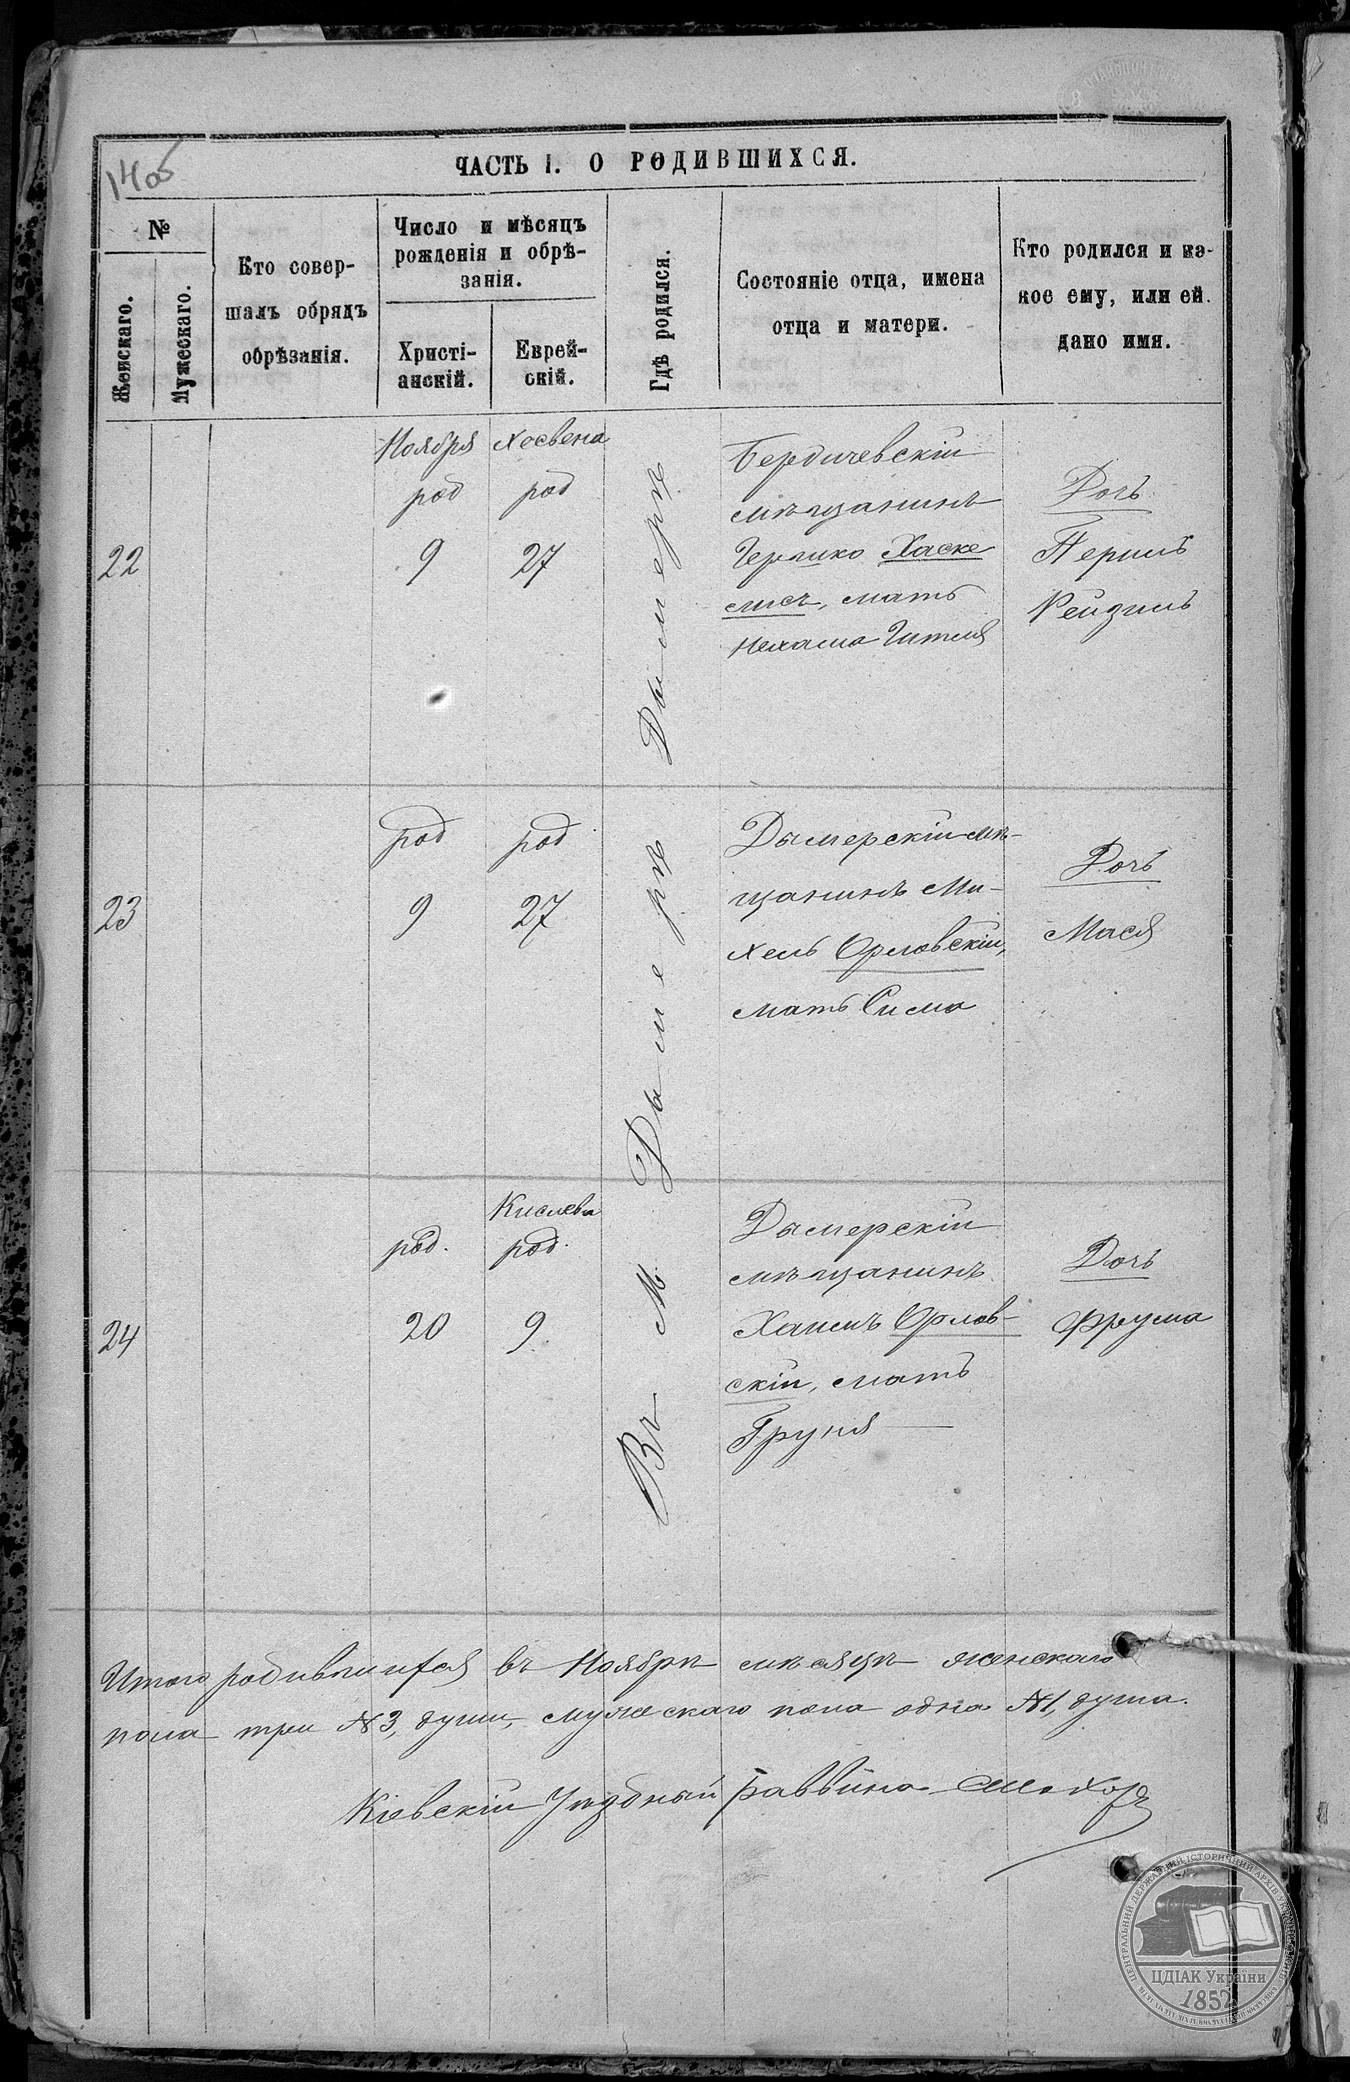 14об
ЧАСТЬ I. О РОДИВШИХСЯ.
№
Женскаго.
Мужескаго.
Кто совер-
шалъ обрядъ
обрѣзанія.
Число и мѣсяцъ
рожденія и обрѣ-
занія.
Христі-
анскій.
Еврей-
скій.
Гдѣ родился.
Состояніе отца, имена
отца и матери.
Кто родился и ка-
кое ему, или ей
дано имя.
22
Ноября
род
9
Хесвена
род
27
Бердичевскій
мѣщанинъ
Хаске
лисъ, мать
Нехама Гитля
Дочь
Перль
Рейзиль
23
род
9
род
27
Дымерскій мѣ-
щанинъ Ми-
хель Орловскій,
мать Сима
Дочь
Мася
24
род.
20
Кислева
род.
9
Дымерскій
мѣщанинъ
Хаимъ Орлов-
скій, мать
Груня
Дочь
Фрума
Въ м. Дымерѣ Дымерѣ
Итого родившихся въ Ноябрѣ мѣсяцѣ женскаго
пола три №3, души, мужескаго пола одна №1, душа.
Кіевскій Уѣздный Раввинъ
ЦЕНТРАЛЬНИЙ ДЕРЖАВНИЙ ІСТОРИЧНИЙ АРХІВ УКРАЇНИ
ЦДІАК України
1852